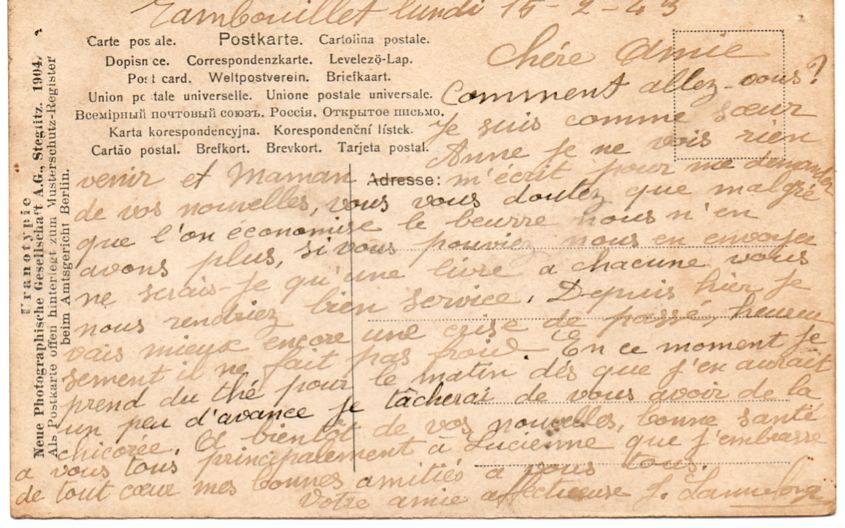 Rambouillet lundi 15-2-43
Carte postale. Postkarte. Cartolina postale.
Dopisnice. Correspondenzkarte. Levelező-Lap.
Post card. Weltpostverein. Briefkaart.
Union postale universelle. Unione postale universale.
Всемірный почтовый союзъ. Россія. Открытое письмо.
Karta korespondencyjna. Korespondenční lístek.
Cartão postal. Brefkort. Brevkort. Tarjeta postal.
Adresse:
Uranotypie
Neue Photographische Gesellschaft A.G., Steglitz. 1904.
Als Postkarte offen hinterlegt zum Musterschutz-Register
beim Amtsgericht Berlin.
Chére Amie
Comment allez-vous?
Je suis comme sœur
Anne je ne vois rien
venir et Maman m'écrit pour me demander
de vos nouvelles, vous vous doutez que malgré
que l'on économise le beurre nous n'en
avons plus, si vous pouviez nous en envoyer
ne serais-je qu'une livre a chacune vous
nous rendriez bien service. Depuis hier je
vais mieux encore une crise de passé, heureu
sement il ne fait pas froid. En ce moment je
prend du thé pour le matin dés que j'en aurait
un peu d'avance je tâcherai de vous avoir de la
chicorée. A bientôt de vos nouvelles, bonne santé
a vous tous principalement à Lucienne que j'embrasse
de tout cœur mes bonnes amitiés a vous tous.
Votre amie affectueuse J.